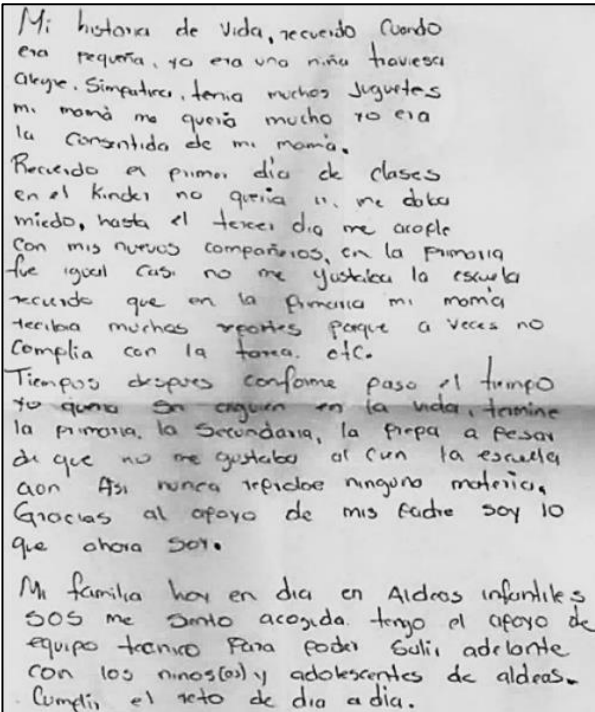 Mi historia de vida, recuerdo cuando
era pequeña, yo era una niña traviesa
alegre. Simpatica, tenia muchos juguetes
mi mamá me queria mucho yo era
la consentida de mi mamá.
Recuerdo el primer dia de clases
en el Kinder no queria ir. me daba
miedo, hasta el tercer dia me acople
con mis nuevos compañeros, en la primaria
fue igual casi no me gustaba la escuela
recuerdo que en la primaria mi mamá
recibia muchos reportes porque a veces no
complia con la tarea. etc.
Tiempos despues conforme paso el tiempo
yo queria en la vida, termine
la primaria, la Secundaria, la Prepa a pesar
de que no me gustaba la escuela
aon Asi nunca ninguna materia.
Gracias al apoyo de mis Padre soy lo
que ahora soy.
Mi familia hoy en dia en Aldeas infantiles
SOS me siento acogida. tengo el apoyo de
equipo tecnico Para poder Salir adelante
con los ninos(as) y adolescentes de aldeas.
Cumplir el reto de dia a dia.